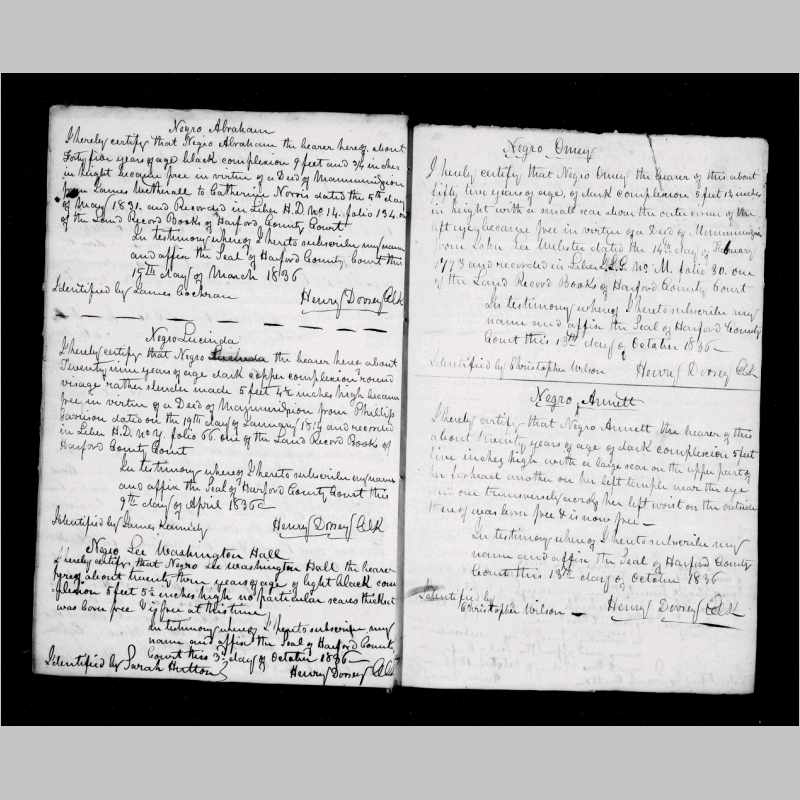 Negro Abraham
I hereby certify that Negro Abraham the bearer hereof about
Forty five years of age black complexion 9 feet and 3/4 inches
in hight became free in virtue of a Deed of Manumission
from James Wetherall to Catherine Norris dated the 5th day
of May 1831. and Recorded in Liber H.D. No 14. folio 134 on
of the Land Record Books of Harford County Court
In testimony whereof I hereto subscribe my name
and affix the Seal of Harford County Court this
15th day of March 1836
Identified by James Cochran Henry Dorsey Clk
Negro Lucinda
I hereby certify that Negro Lucinda the bearer hereof about
Twenty nine years of age dark copper complexion round
visage rather slender made 5 feet 4 1/2 inches high became
free in virtue of a Deed of Manumission from Phillip
Garrison dated on the 19th day of January 18 and recorded
in Liber H.D. No folio 66. one of the Land Record Books of
Harford County Court
In testimony whereof I hereto subscribe my name
and affix the Seal of Harford County Court this
9th day of April 1836
Identified by James Kennedy Henry Dorsey Clk
Negro Lee Washington Hall
I hereby certify that Negro Lee Washington Hall the bearer
hereof about twenty three years of age of light black com
plexion 5 feet 5 1/2 inches high no particular scars
was born free & is free at this time
In testimony whereof I hereto subscribe my
name and affix the Seal of Harford County
Court this 3rd day of October 1836
Identified by Sarah Hutton Henry Dorsey Clk
Negro Omey
I hereby certify that Negro Omey the bearer of this about
fifty five years of age, of dark complexion 5 feet 1 1/2 inches
in height with a small scar above the outer corner of the
left eye, became free in virtue of a Deed of Manumission
from John Lee Webster dated the 14th day of February
1773 and recorded in Liber J.L.G. No M. folio 80. one
of the Land Record Books of Harford County Court
In testimony whereof I hereto subscribe my
name and affix the Seal of Harford County
Court this 13th day of October 1836
Identified by Christopher Wilson Henry Dorsey Clk
Negro Annett
I hereby certify that Negro Annett the bearer of this
about twenty years of age of dark complexion 5 feet
five inches high with a large scar on the upper part of
her forhead another on her left temple near the eye
and one transversely across her left wrist on the outside
thereof was born free & is now free
In testimony whereof I hereto subscribe my
name and affix the Seal of Harford County
Court this 13th day of October 1836
Identified by
Christopher Wilson Henry Dorsey Clk